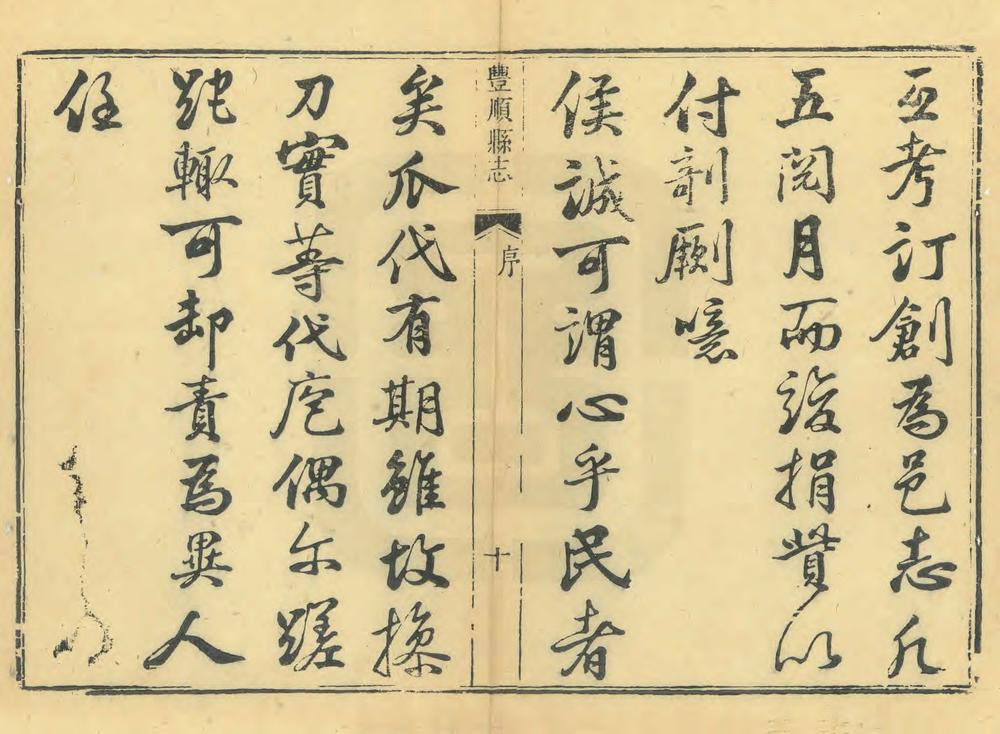 亟考訂創為邑志凡
五閱月而竣捐貲以
付剞劂噫
侯誠可謂心乎民者
豐順縣志
序
十
矣瓜代有期雖故操
刀實等代庖偶尔蹉
跎輙可卸責為異人
任